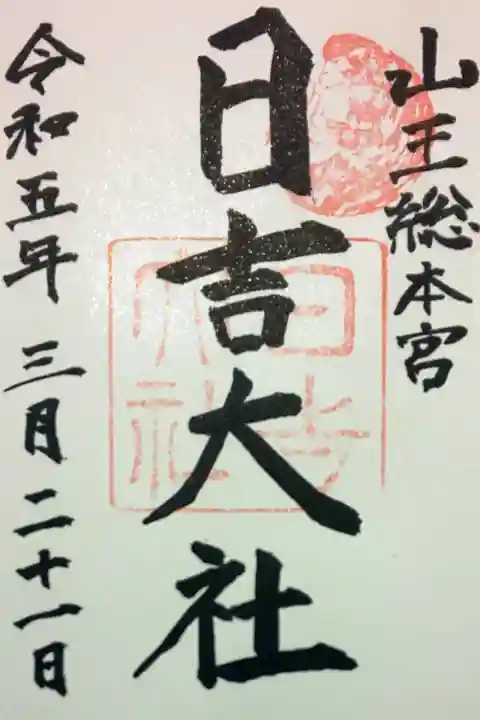 山王総本宮
日吉大社
令和五年 三月 二十一日